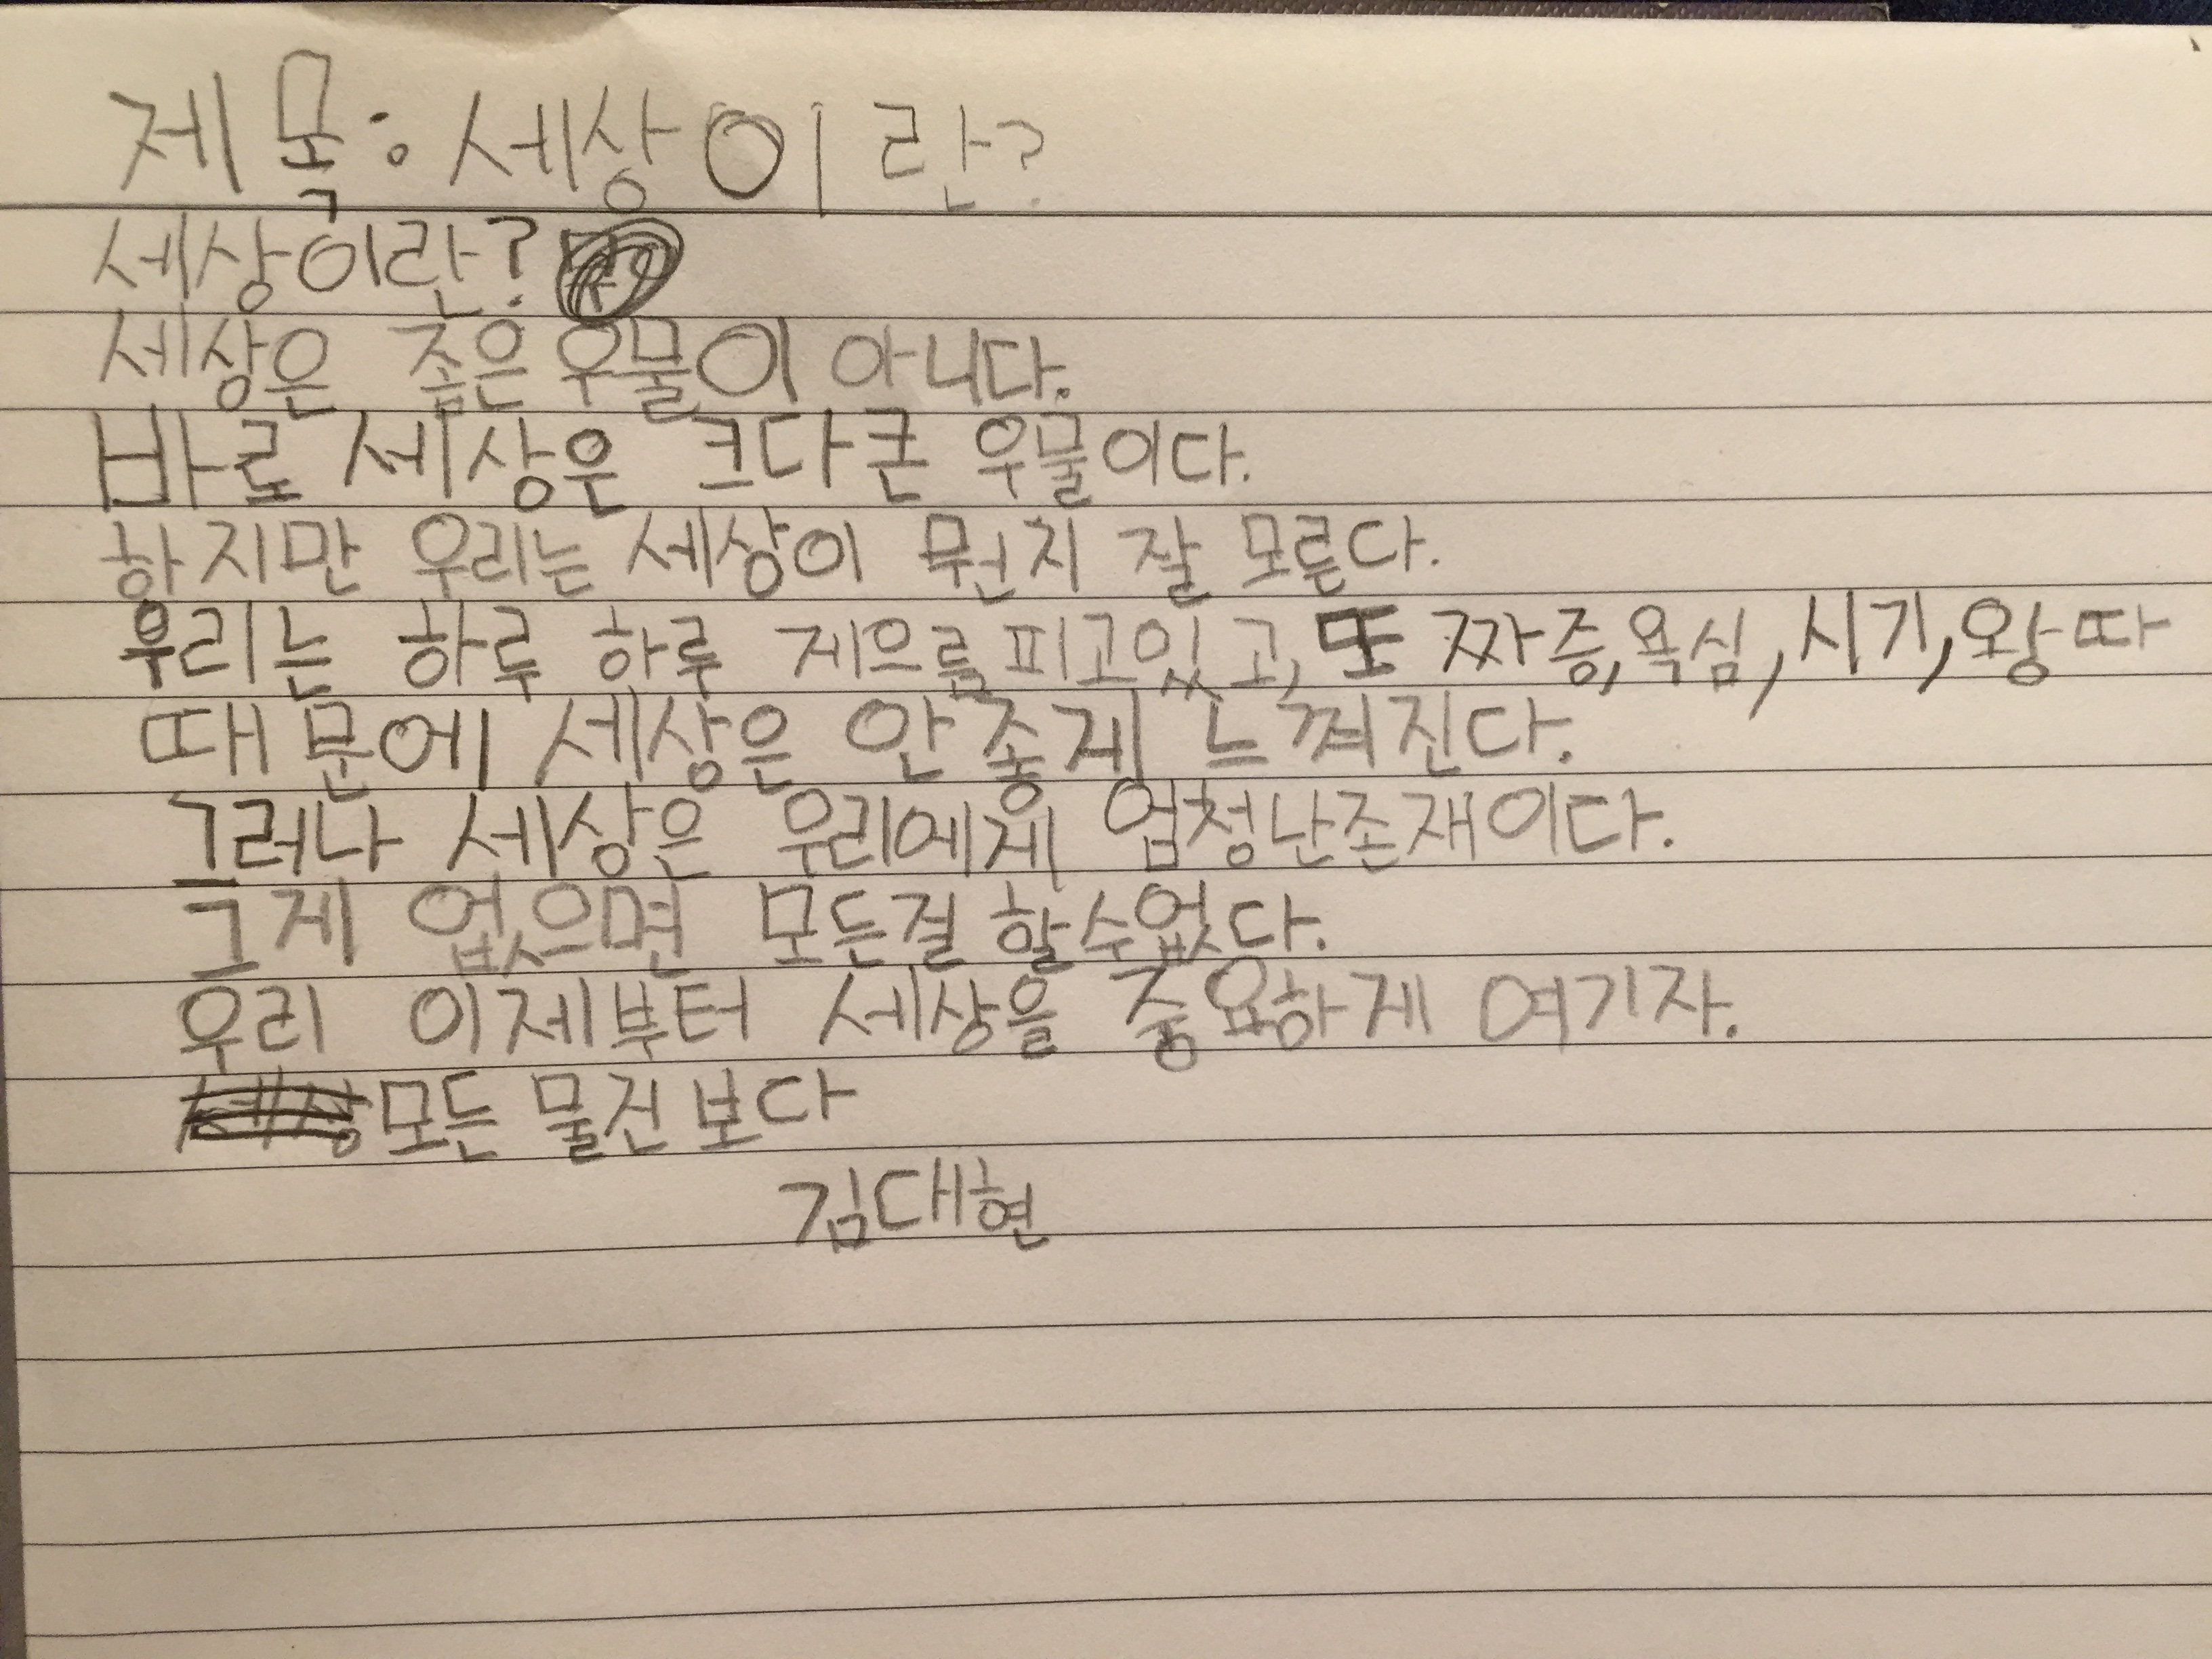 제목: 세상이란?
세상이란?
세상은 좁은 우물이 아니다.
바로 세상은 크다큰 우물이다.
하지만 우리는 세상이 뭔지 잘 모른다.
우리는 하루 하루 게으름피고있고, 또 짜증, 욕심, 시기, 왕따
때문에 세상은 안 좋게 느껴진다.
그러나 세상은 우리에게 엄청난존재이다.
그게 없으면 모든걸 할수없다.
우리 이제부터 세상을 중요하게 여기자.
모든 물건보다
김대현